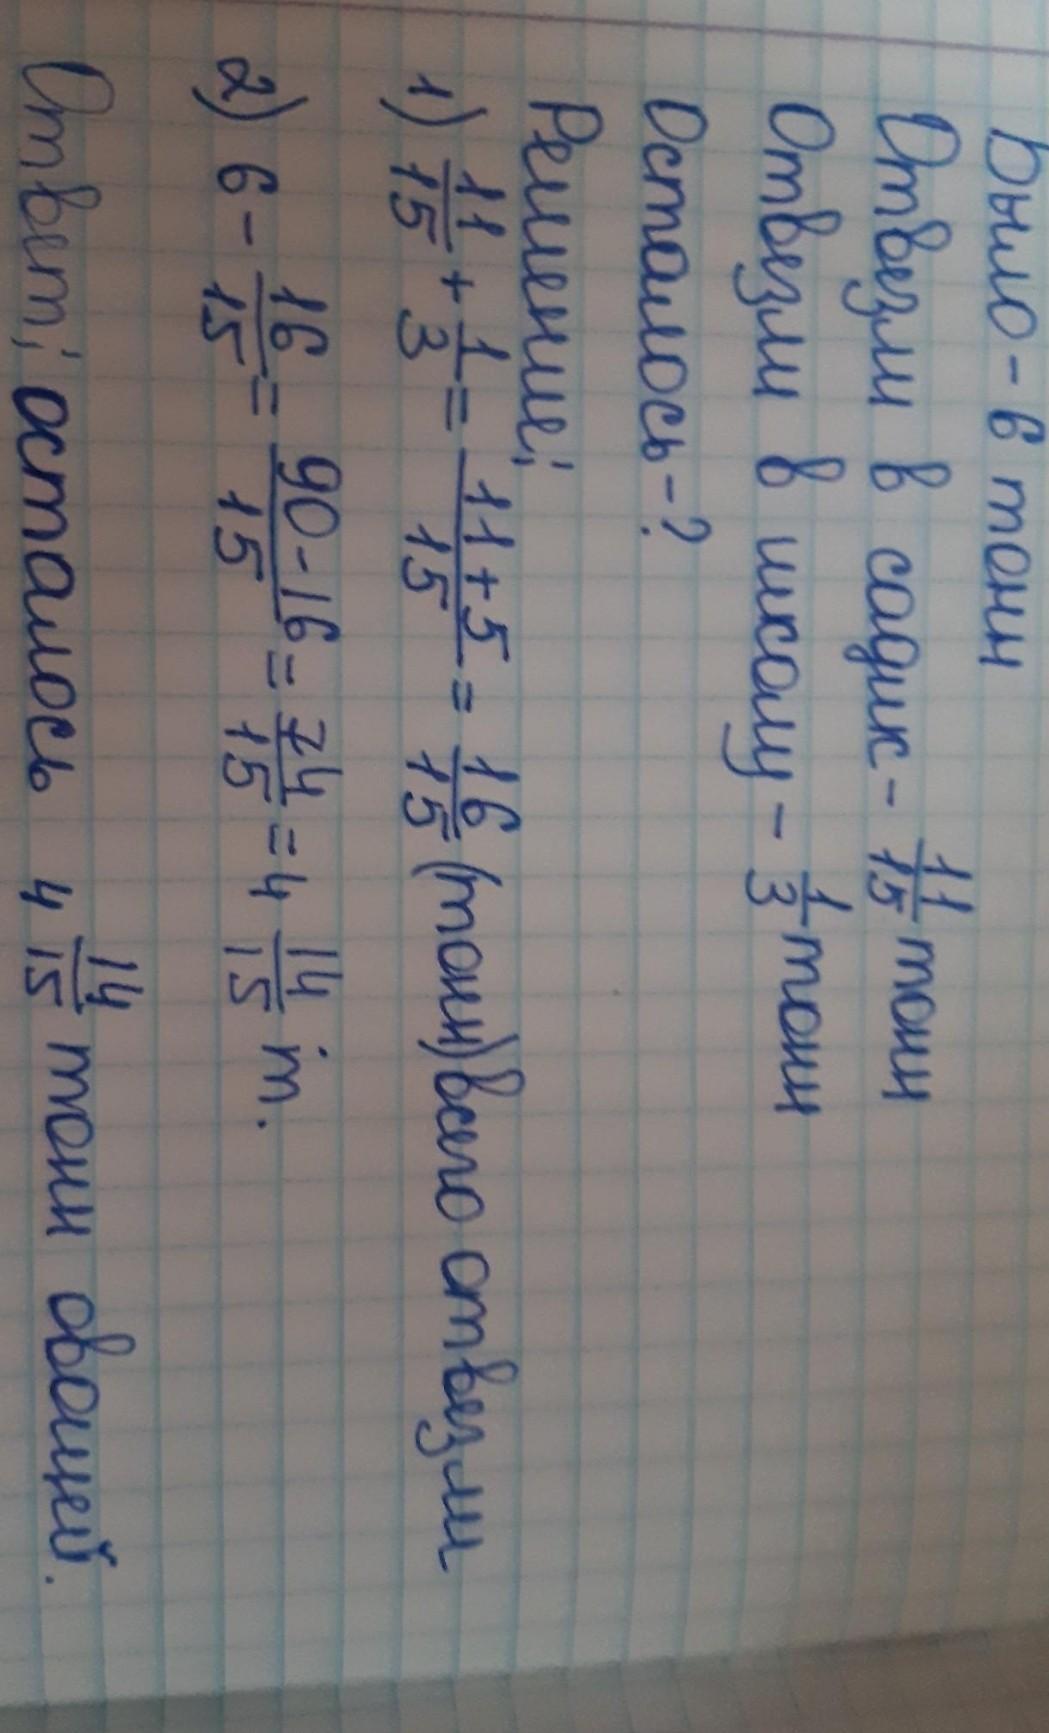 Было - 6 тонн
Отвезли в садик - 11/15 тонн
Отвезли в школу - 1/3 тонн
Осталось - ?
Решение:
1) 11/15 + 1/3 = 11+5/15 = 16/15 (тонн) всего отвезли
2) 6 - 16/15 = 90-16/15 = 74/15 = 4 14/15 т.
Ответ: осталось 4 14/15 тонн овощей.